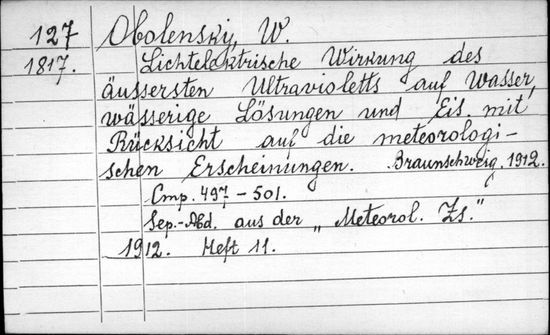 127 Obolensky, W.
1817. Lichtelektrische Wirkung des
äussersten Ultravioletts auf Wasser,
wässerige Lösungen und Eis mit
Rücksicht auf die meteorologi-
schen Erscheinungen. Braunschweig, 1912.
Cmp. 497-501.
Sep.-Abd. aus der „Meteorol. Zs."
1912. Heft 11.